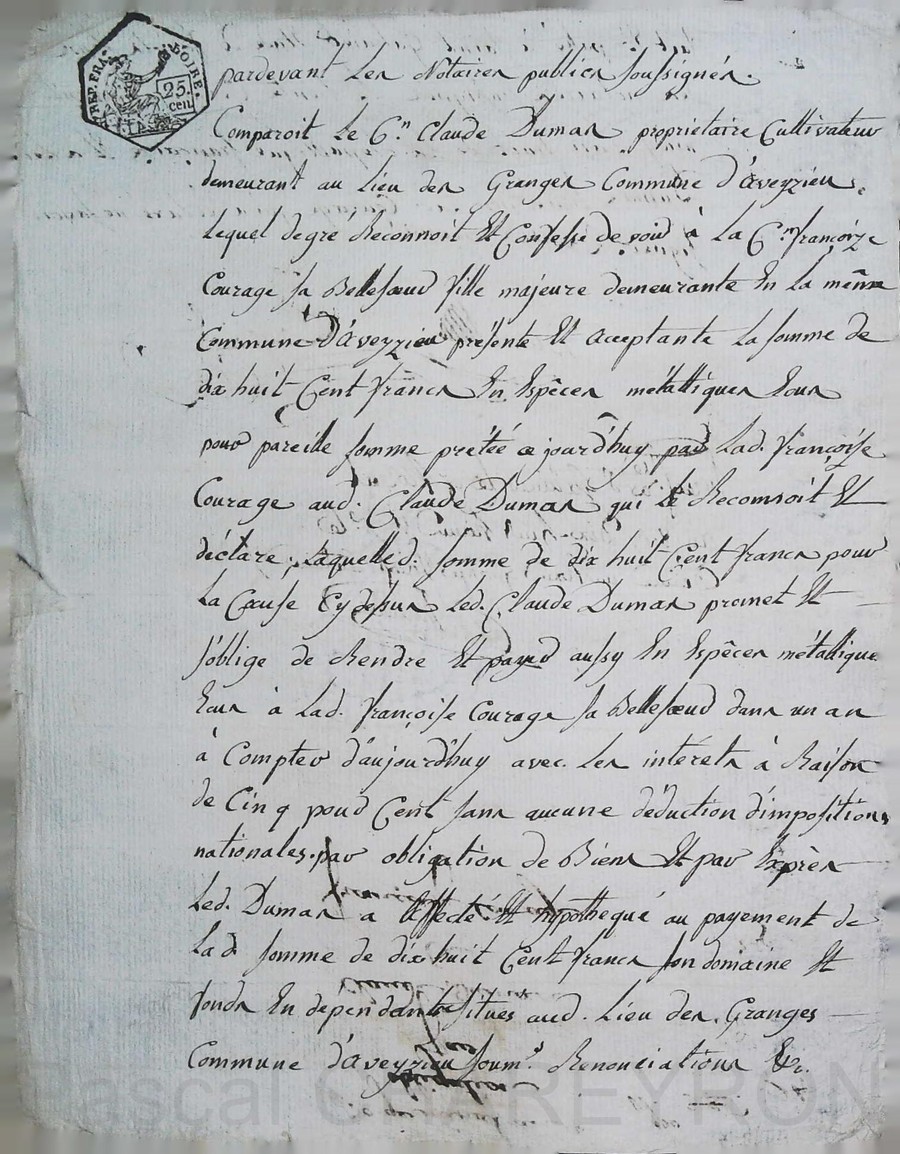 REP. FRA.
LOIRE.
25.
cen.
pardevant Les Notaires publics soussignés.
Comparoit Le C.n Claude Dumas propriétaire Cultivateur
demeurant au Lieu des Granges Commune d'aveyzieu,
Lequel degré Reconnoit Et Confesse devoir à La C.ne françoize
Courage sa Bellesoeur fille majeure demeurante En La même
Commune D'aveyzieu présente Et acceptante La somme de
dix huit Cent francs En Espêces métalliques Cours
pour pareille somme prétée ajourd'huy par Lad. françoise
Courage aud. Claude Dumas qui Le Reconnoit Et
déclare, Laquelled. somme de dix huit Cent francs pour
La Cause Cy dessus Led. Claude Dumas promet Et
s'oblige de Rendre Et payer aussy En Espêces métallique
Cours à Lad. françoise Courage sa Bellesoeur dans un an
à Compter d'aujourd'huy avec Les intérets à Raison
de Cinq pour Cent sans aucune déduction d'impositions
nationales. par obligation de Biens Et par Exprès
Led. Dumas a affecté Et hypothequé au payement de
Lad. somme de dix huit Cent francs son domaine Et
fonds En dependants situes aud. Lieu des Granges
Commune d'aveyzieu soum.s Renonciations &c.
Pascal CHAREYRON